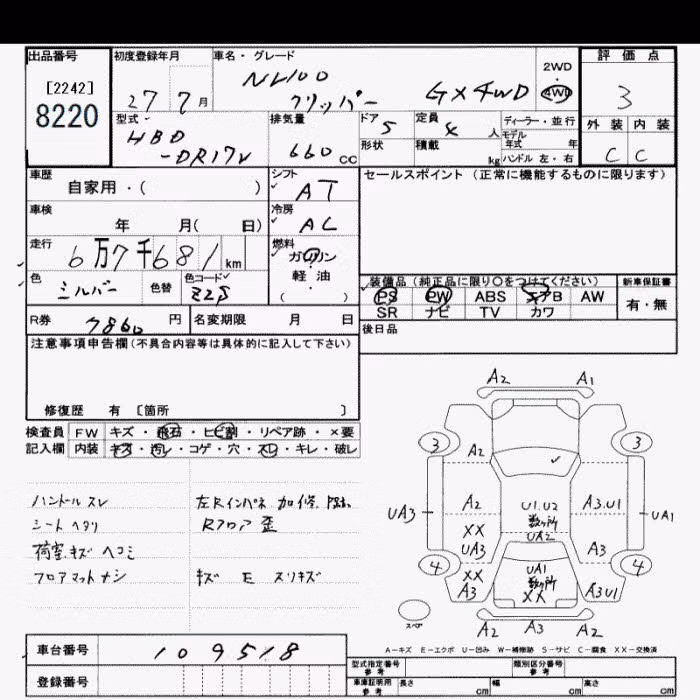 出品番号 初度登録年月 車名・グレード 評価点
[2242]
8220
27 7月
NV100
クリッパー GX 4WD
2WD
・
4WD
3
型式 排気量 ドア 定員 ディーラー・並行 外装 内装
HBD
-DR17V
660 CC
5 4 人
モデル
年式 年
形状 積載 kg ハンドル 左・右
C C
車歴 シフト セールスポイント(正常に機能するものに限ります)
自家用・( ) AT
車検 冷房
年 月( 日) AC
走行 燃料
6万7千681 km ガソリン
軽油
・( )
色 色替 色コード
シルバー Z2S
装備品(純正品に限り○をつけてください) 新車保証書
PS PW ABS エアB AW 有・無
SR ナビ TV カワ
R券 7860 円 名変期限 月 日
後日品
注意事項申告欄(不具合内容等は具体的に記入して下さい)
修復歴 有 〔箇所 〕
検査員 FW キズ・飛石・ヒビ割・リペア跡・×要
記入欄 内装 キズ・汚レ・コゲ・穴・スレ・キレ・破レ
ハンドルスレ
シートヘタリ
荷室キズ ヘコミ
フロアマットナシ
左Rインパネ 加修
Rフロア 歪
キズ E スリキズ
A2 A1
3 3
A2
UA3 A2 U1.U2 A3.U1 UA1
XX 数ヶ所
UA3 UA2 A3
4 UA1 4
XX 数ヶ所
A3 XX A3U1
スペア
A2 A3 A2
A-キズ E-エクボ U-凹み W-補修跡 S-サビ C-腐食 XX-交換済
車台番号 109518
登録番号
型式指定番号 類別区分番号
参考
車庫証明用 長さ cm 幅 cm 高さ cm
参考